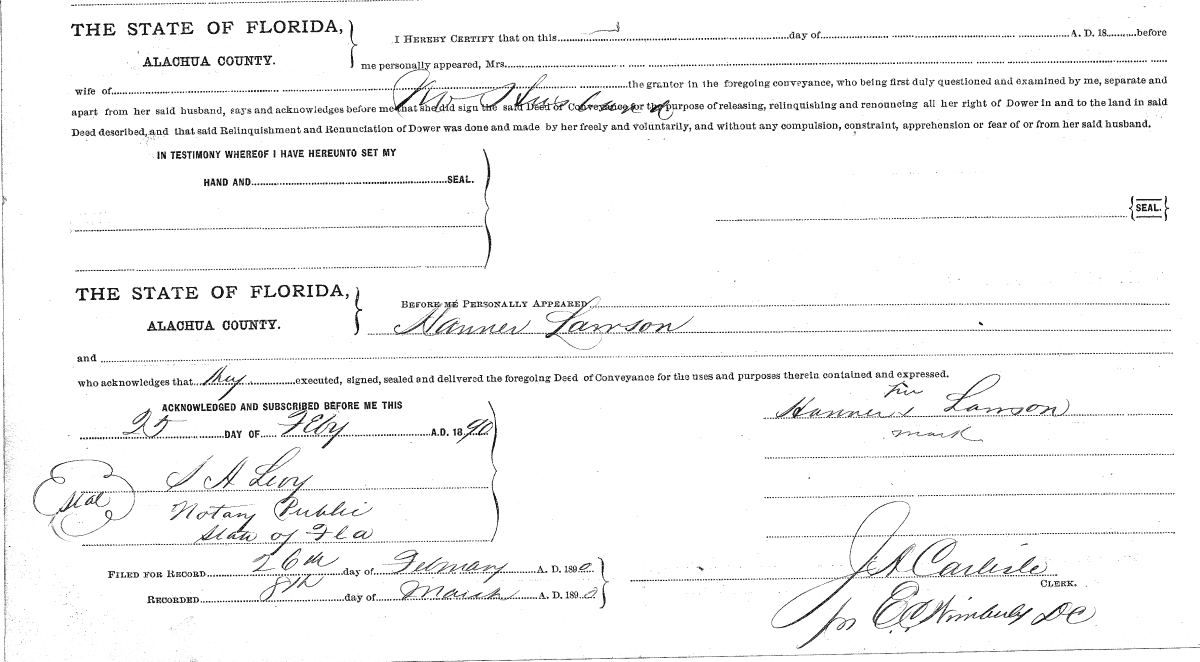 THE STATE OF FLORIDA,
ALACHUA COUNTY.
I HEREBY CERTIFY that on this day of A. D. 18 before
me personally appeared, Mrs.
wife of the grantor in the foregoing conveyance, who being first duly questioned and examined by me, separate and
apart from her said husband, says and acknowledges before me that she did sign the said Deed of Conveyance for the purpose of releasing, relinquishing and renouncing all her right of Dower in and to the land in said
Deed described, and that said Relinquishment and Renunciation of Dower was done and made by her freely and voluntarily, and without any compulsion, constraint, apprehension or fear of or from her said husband.
IN TESTIMONY WHEREOF I HAVE HEREUNTO SET MY
HAND AND SEAL.
{SEAL.}
THE STATE OF FLORIDA,
ALACHUA COUNTY.
BEFORE ME PERSONALLY APPEARED
Hanner Lawson
and
who acknowledges that they executed, signed, sealed and delivered the foregoing Deed of Conveyance for the uses and purposes therein contained and expressed.
ACKNOWLEDGED AND SUBSCRIBED BEFORE ME THIS
25 DAY OF Feby A.D. 1890
Hanner x Lawson
mark
S A Levy
Seal
Notary Public
State of Fla
FILED FOR RECORD 26th day of February A. D. 1890
RECORDED 8th day of March A. D. 1890
J A Carlisle
CLERK.
per E C Wimberly DC